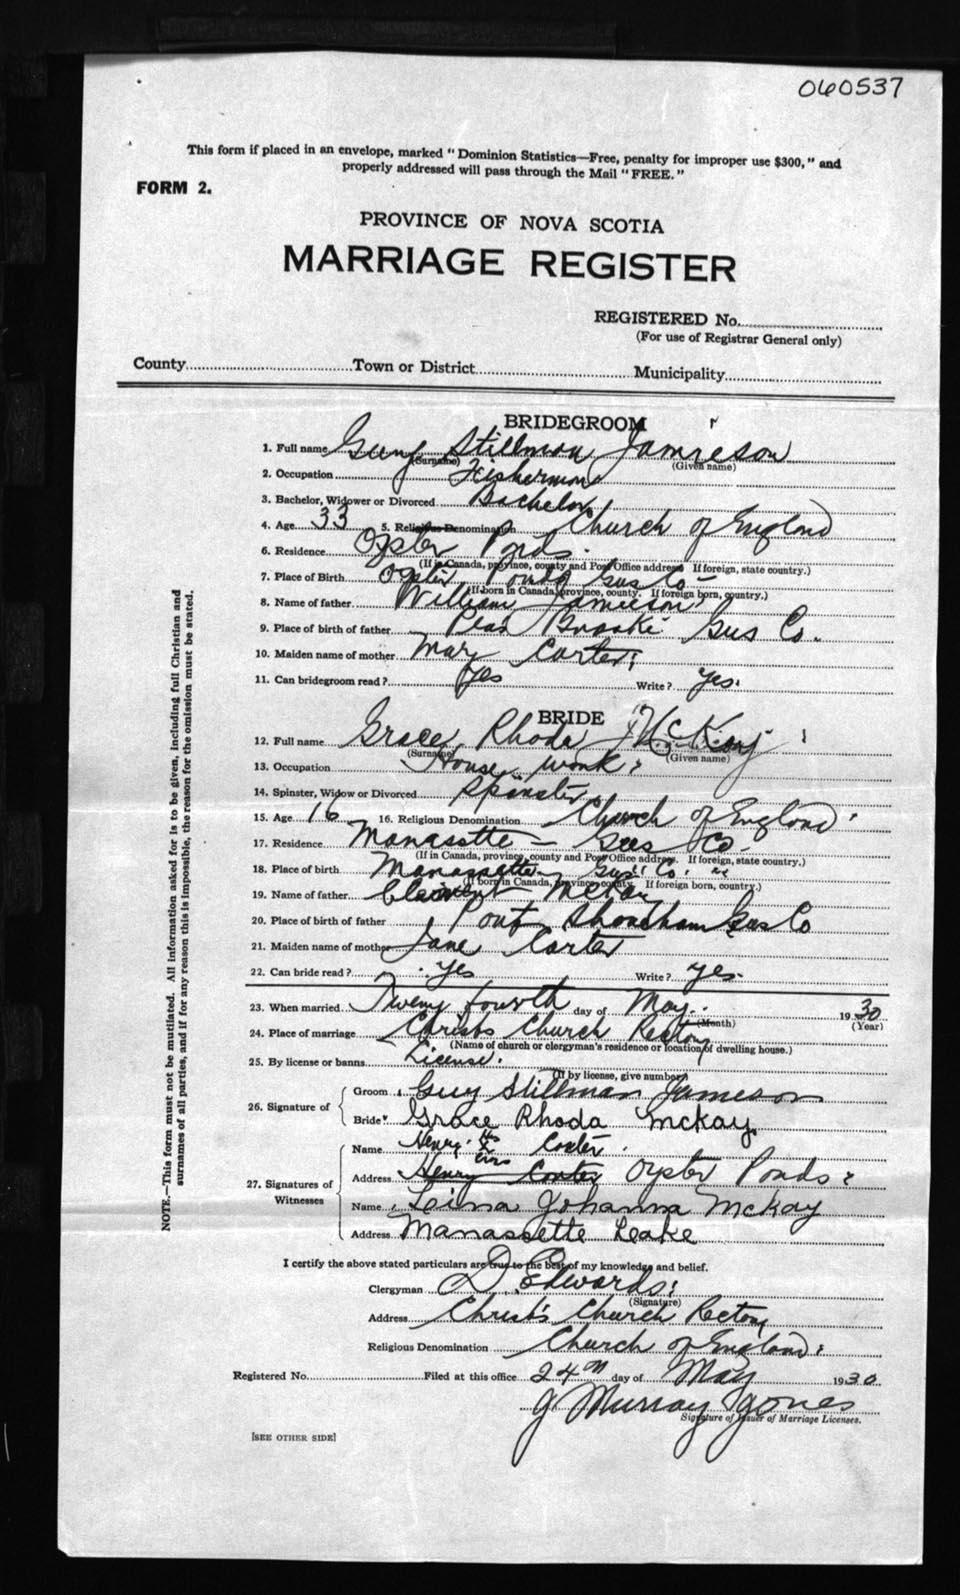 060537
This form if placed in an envelope, marked "Dominion Statistics—Free, penalty for improper use $300," and
properly addressed will pass through the Mail "FREE."
FORM 2.
PROVINCE OF NOVA SCOTIA
MARRIAGE REGISTER
REGISTERED No.
(For use of Registrar General only)
County Town or District Municipality
BRIDEGROOM
1. Full name Guy Stillman Jamieson
(Surname) (Given name)
2. Occupation Fisherman
3. Bachelor, Widower or Divorced Bachelor
4. Age 33 5. Religious Denomination Church of England
6. Residence Oyster Ponds.
(If in Canada, province, county and Post Office address. If foreign, state country.)
7. Place of Birth Oyster Ponds Gus Co
(If born in Canada, province, county. If foreign born, country.)
8. Name of father William Jamieson
9. Place of birth of father Brook Gus Co.
10. Maiden name of mother Mary Carter
11. Can bridegroom read? Yes Write? Yes.
BRIDE
12. Full name Grace Rhoda McKay
(Surname) (Given name)
13. Occupation House work
14. Spinster, Widow or Divorced Spinster
15. Age 16 16. Religious Denomination Church of England
17. Residence Manasette - Gus Co.
(If in Canada, province, county and Post Office address. If foreign, state country.)
18. Place of birth Manassette Gus Co.
(If born in Canada, province, county. If foreign born, country.)
19. Name of father McKay
20. Place of birth of father Port Shoreham Gus Co
21. Maiden name of mother Jane Carter
22. Can bride read? Yes Write? Yes.
23. When married Tweny fourth day of May. 1930
(Month) (Year)
24. Place of marriage Christs Church Rectory
(Name of church or clergyman's residence or location of dwelling house.)
25. By license or banns License.
(If by license, give number)
26. Signature of Groom Guy Stillman Jameson
Bride Grace Rhoda McKay
27. Signatures of Witnesses Name Henry his X Carter
Address Henry Carter Oyster Ponds
Name Leina Johanna McKay
Address Manassette Leake
I certify the above stated particulars are true to the best of my knowledge and belief.
Clergyman D. Edwards
(Signature)
Address Christ's Church Rectory
Religious Denomination Church of England
Registered No. Filed at this office 24th day of May 1930
J Murray Jones
Signature of Issuer of Marriage Licenses.
[SEE OTHER SIDE]
NOTE.—This form must not be mutilated. All information asked for is to be given, including full Christian and
surnames of all parties, and if for any reason this is impossible, the reason for the omission must be stated.